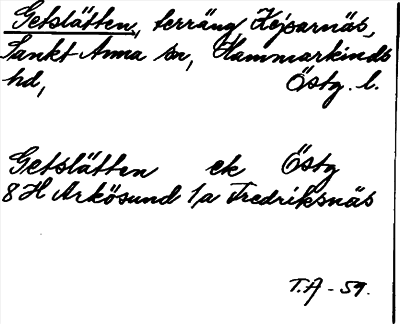 Getslätten, terräng, Kejsarnäs,
Sankt Anna sn, Hammarkinds
hd, Östg. l.
Getslätten ek Östg
8 H Arkösund 1,a Fredriksnäs
T.A - 59.